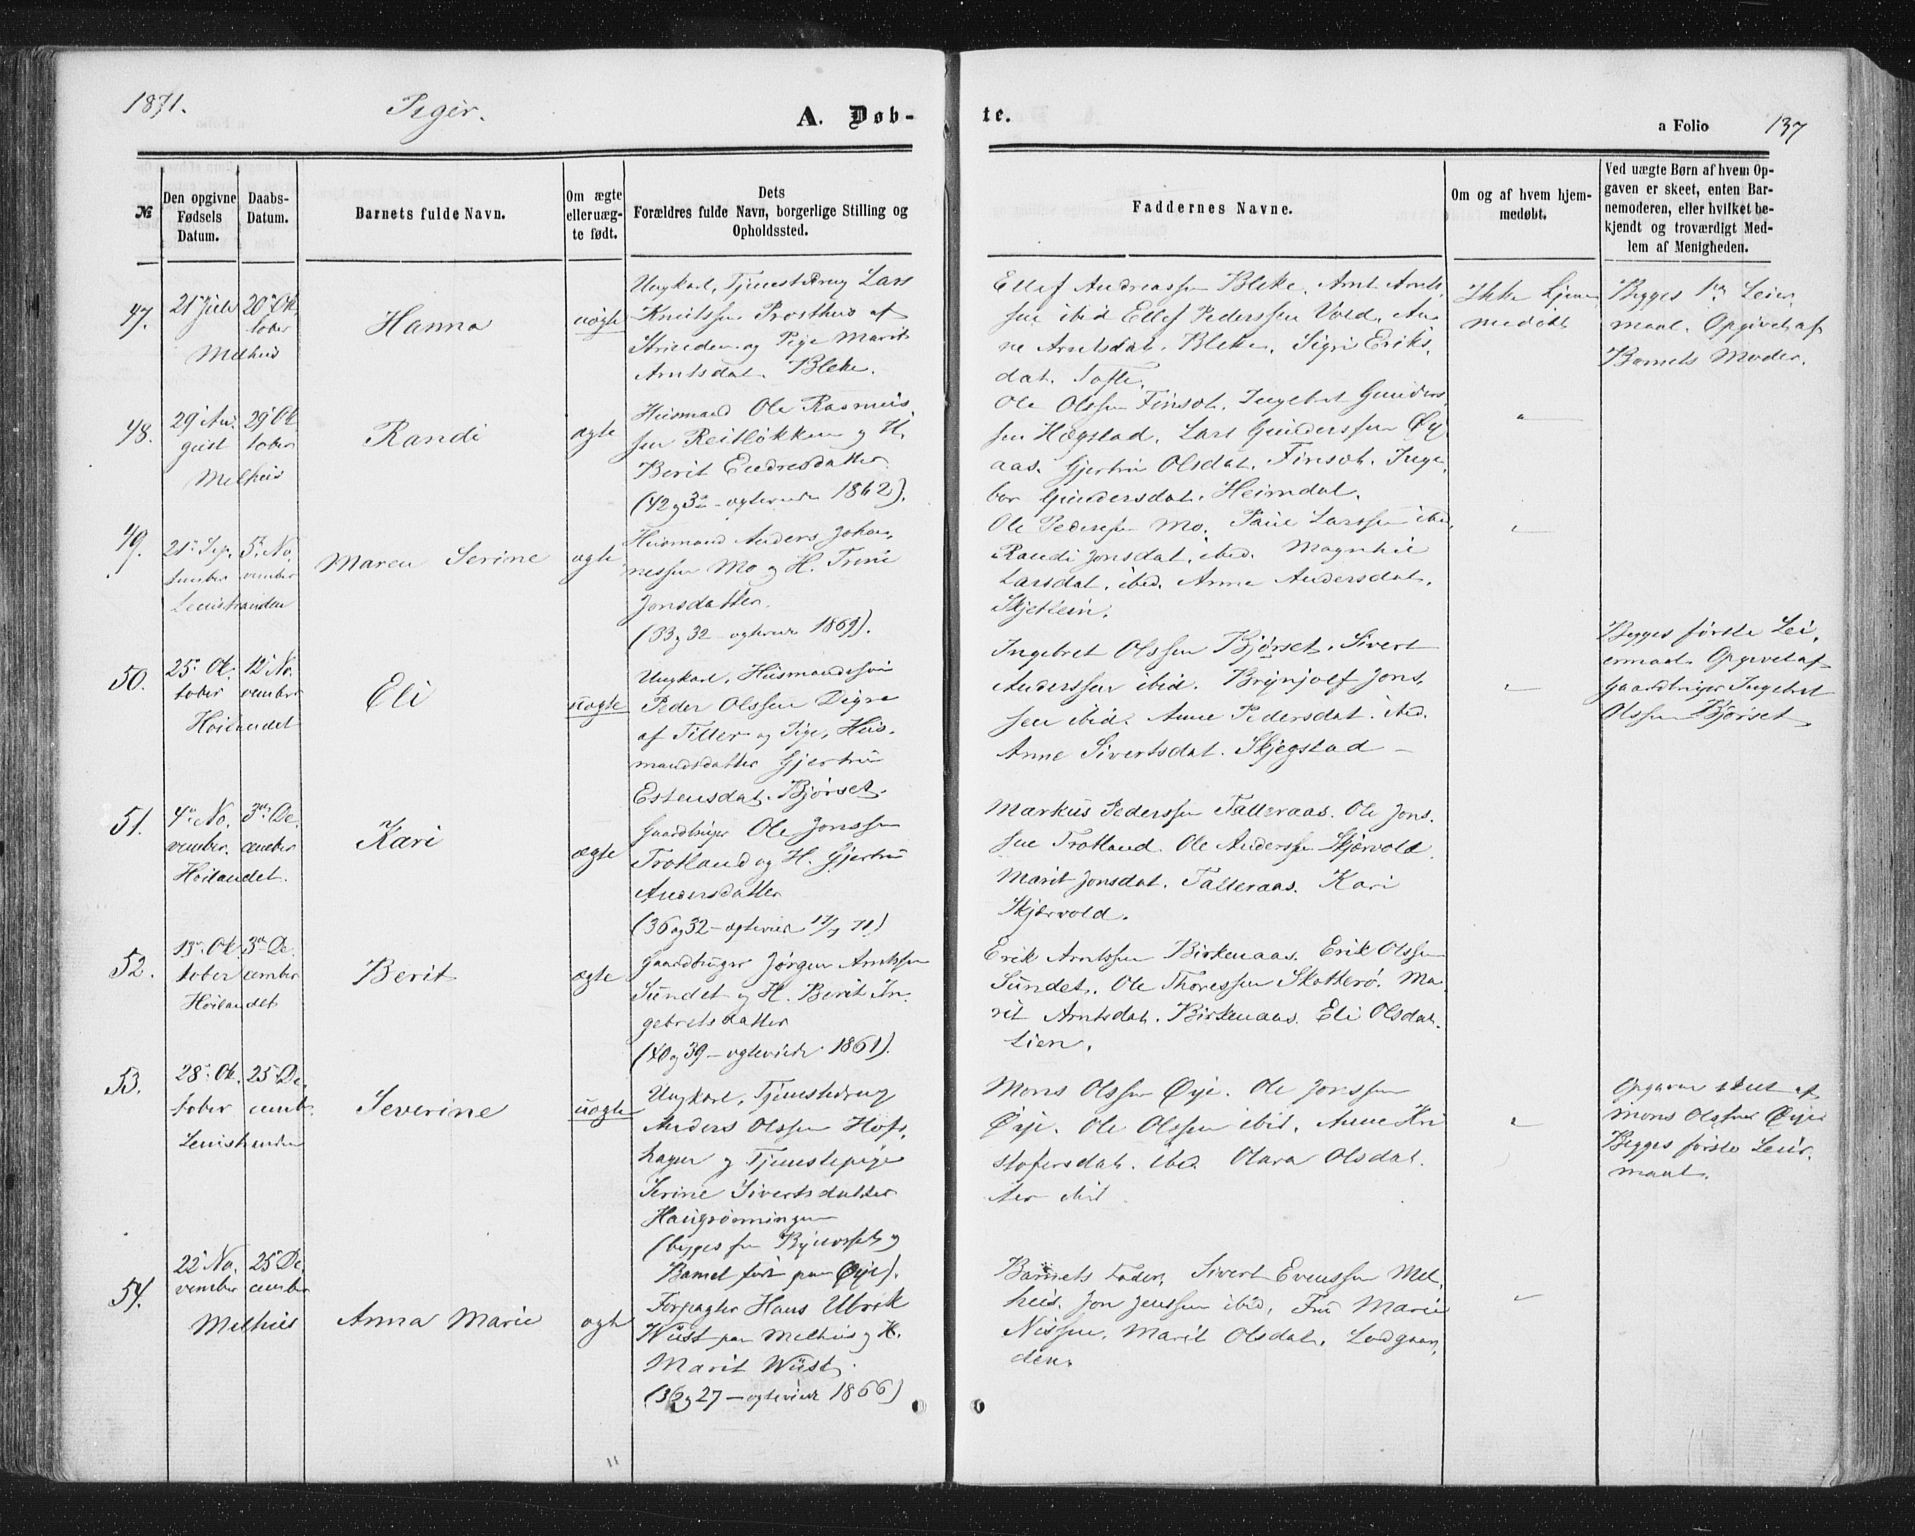 1871.
Piger.
A. Døb-
te.
a Folio 137
№
Den opgivne Fødsels Datum.
Daabs-Datum.
Barnets fulde Navn.
Om ægte eller uæg-te født.
Dets Forældres fulde Navn, borgerlige Stilling og Opholdssted.
Faddernes Navne.
Om og af hvem hjem-medøbt.
Ved uægte Børn af hvem Op-gaven er skeet, enten Bar-nemoderen, eller hvilket be-kjendt og troværdigt Med-lem af Menigheden.
47.
21de Juli
Melhus
20de Ok
tober
Hanna
uægte
Ungkarl, Tjenestedreng Lars
Knutssen Prosthus af
Strinden og Pige Marit
Arntsdat. Bleke.
Ellef Andreassen Bleke. Arnt Arnt,
sen ibid Ellef Pederssen Vold, An
ne Arntsdat. Bleke. Sigri Eriks,
dat. Tofte.
Ikke hjem
medøbt
Begges 1ste Leier
maal. Opgivet af
Barnets Moder.
48.
29de Au
gust
Melhus
29de Ok
tober
Randi
ægte
Husmand Ole Rasmus
sen Reitløkken og H.
Berit Endresdatter
(42 og 3 – ægteviede 1862).
Ole Olssen Finsot. Ingebret Gunders
sen Hægstad. Lars Gunderssen Øy
aas. Gjertru Olsdat. Finsot. Inge
bor Gundersdat. Heimdal.
"
49.
21de Sep.
tember
Leinstranden
5te No
vember
Maren Serine
ægte
Husmand Anders Johan
nessen Mo og H. Trine
Jonsdatter.
(33 og 32 – ægteviede 1869).
Ole Pederssen Mo. Paul Larssen ibid.
Randi Jonsdat. ibid. Magnhil
Larsdat. ibid. Anne Andersdat.
Skjetlein.
"
50.
25de Ok
tober
Høilandet
12te No
vember
Eli
uægte
Ungkarl, Husmandssøn
Peder Olssen Digre
af Tiller og Pige, Hus
mandsdatter Gjertru
Estensdat. Bjørset.
Ingebret Olssen Bjørset. Sivert
Anderssen ibid. Brynjolf Jons
sen ibid. Anne Pedersdat. ibid.
Anne Sivertsdat. Skjegstad –
"
Begges første Lei
ermaal. Opgivet af
Gaardbruger Ingebret
Olssen Bjørset
51.
4de No.
vember.
Høilandet.
3die De.
cember
Kari
ægte
Gaardbruger Ole Jonssen
Trotland og H. Gjertru
Andersdatter
Markus Pederssen Talleraas. Ole Jons
sen Trotland. Ole Anderssen Skjervold.
Marit Jonsdat. Talleraas. Kari
Skjervold.
52.
13de Ok
tober
Høilandet
3die De
cember
Berit
ægte
Gaardbruger Jørgen Arntssen
Sundet og H. Berit In
gebretsdatter
(40 og 39 – ægteviede 1861).
Erik Arntssen Birkenaas. Erik Olssen
Sundet. Ole Thoressen Skotterø. Ma
rit Arntsdat. Birkenaas. Eli Olsdat.
Lien.
53.
28de Ok.
tober
Leinstranden
25de De.
cemb.
Severine
uægte
Ungkarl, Tjenestedreng
Anders Olssen Hofs
hagen og Tjenestepige
Serine Sivertsdatter
Haugrønningen
(begge fra Bynesset og
Barnet født paa Øye).
Mons Olssen Øye. Ole Jonssen
Øye. Ole Olssen ibid. Anne Kri
stofersdat. ibid. Olava Olsdat
ter ibid.
"
Opgaven skeet af
Mons Olssen Øye
Begges første Leier
maal.
54.
22de No.
vember
Melhus
25de De.
cember
Anna Marie
ægte
Forpagter Hans Ulrik
Wüst paa Melhus og H.
Marit Wüst.
(36 og 27 – ægteviede 1866)
Barnets Fader. Sivert Evenssen Mel
hus. Jon Jenssen ibid. Fru Marie
Nissen. Marit Olsdat. Lodgaar
den.
"